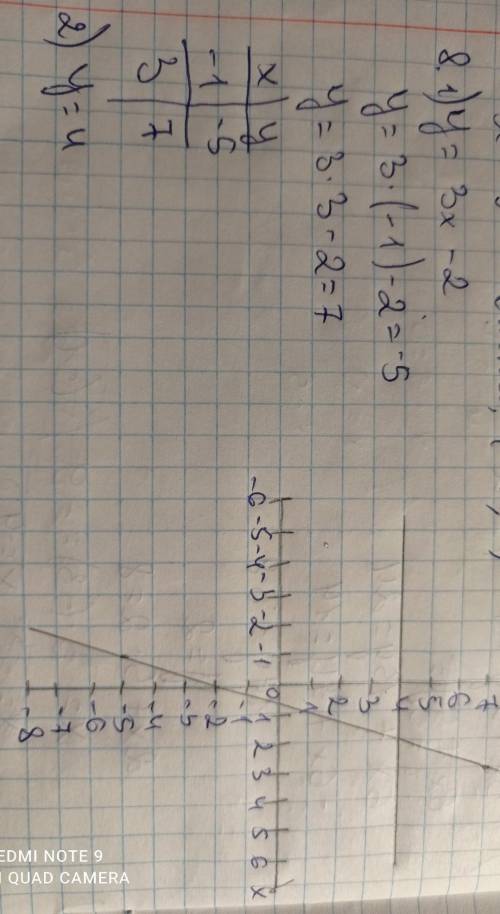 8. 1) y = 3x - 2
y = 3·(-1) - 2 = -5
y = 3·3 - 2 = 7
x y
-1 -5
3 7
2) y = 4
7
6
5
4
3
2
1
-6 -5 -4 -3 -2 -1 0 1 2 3 4 5 6 x
-1
-2
-3
-4
-5
-6
-7
-8
REDMI NOTE 9
AI QUAD CAMERA